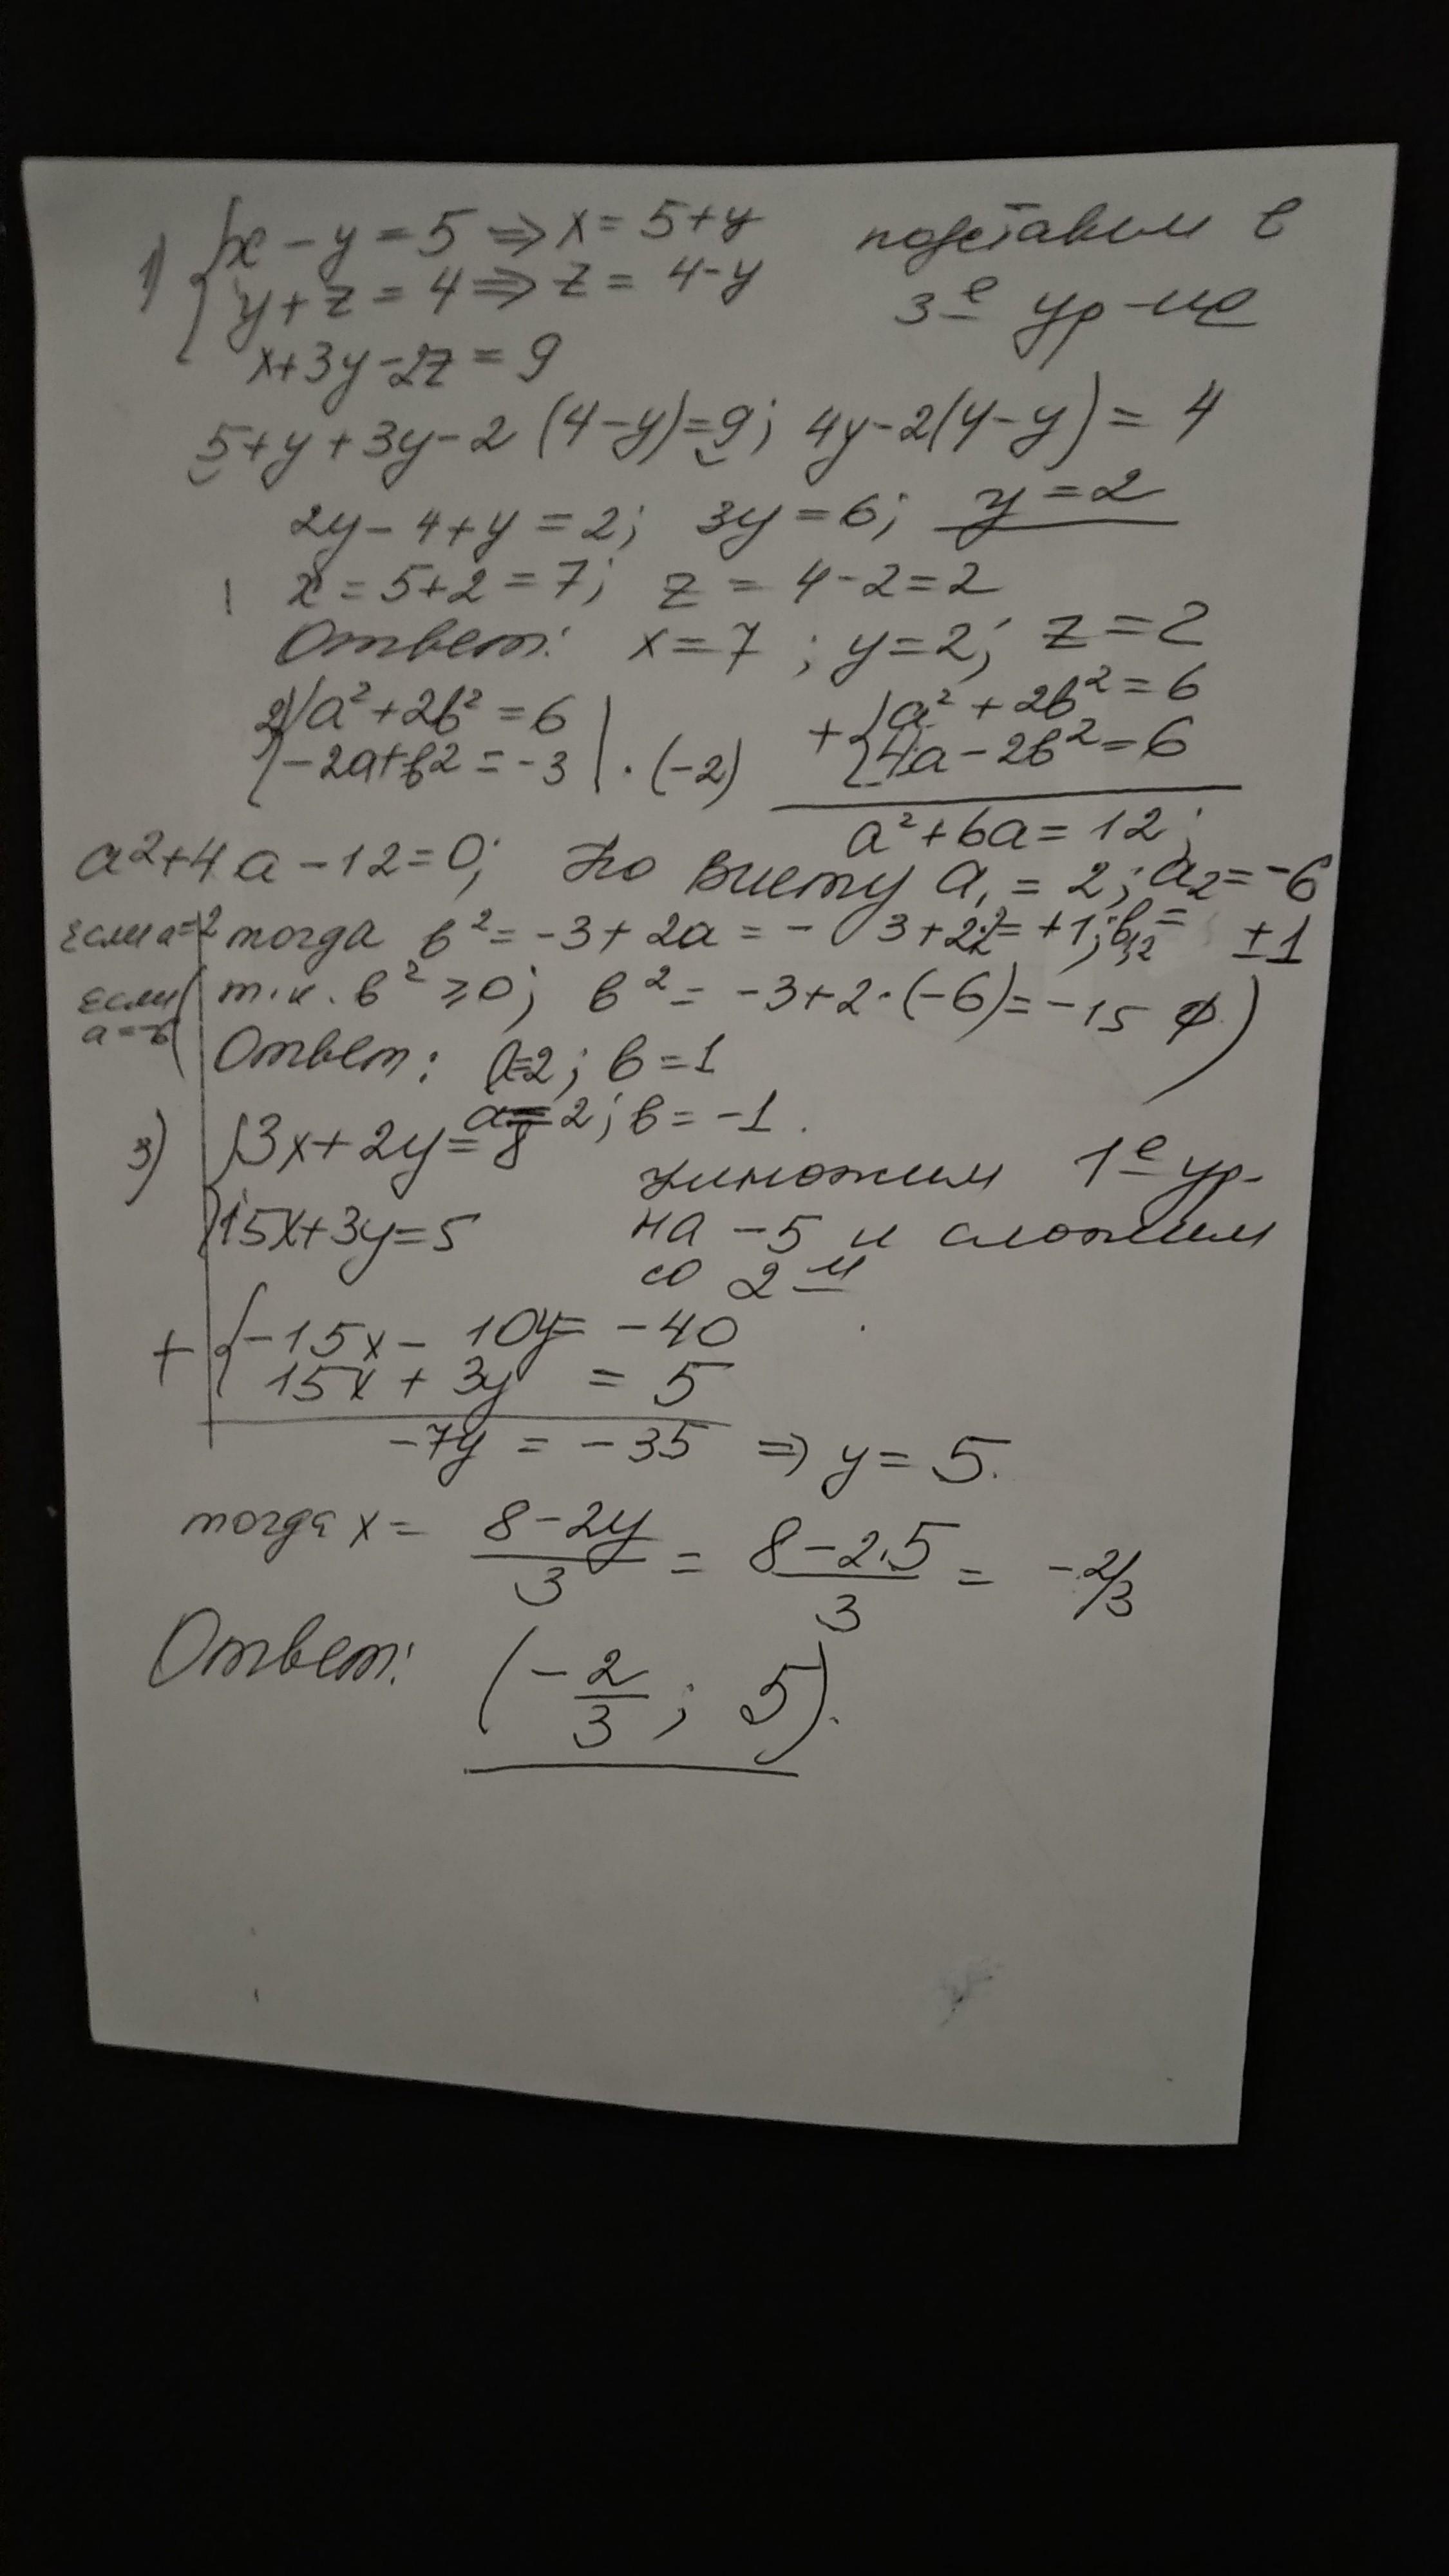 1) { x - y = 5 => x = 5+y подставим в
y + z = 4 => z = 4-y 3е ур-ие
x+3y-2z = 9
5+y+3y-2(4-y)=9; 4y-2(4-y) = 4
2y-4+y = 2; 3y = 6; y = 2
x = 5+2 = 7; z = 4-2 = 2
Ответ: x = 7; y = 2; z = 2
2) { a² + 2b² = 6 | + { a² + 2b² = 6
-2a+b² = -3 | · (-2) 4a - 2b² = 6
a² + 6a = 12;
a²+4a-12=0; по Виету a₁ = 2; a₂ = -6
если a=2 тогда b² = -3+2a = -3+2·2 = +1; b₁,₂ = ±1
если a=-6 ( т.к. b² ≥ 0; b² = -3+2·(-6) = -15 ∅ )
Ответ: a=2; b=1
a=2; b=-1.
3) { 3x+2y=8 умножим 1е ур-
15x+3y=5 на -5 и сложим
со 2м
+ { -15x - 10y = -40
15x + 3y = 5
-7y = -35 => y = 5.
тогда x = (8-2y)/3 = (8-2·5)/3 = -2/3
Ответ: (-2/3; 5).